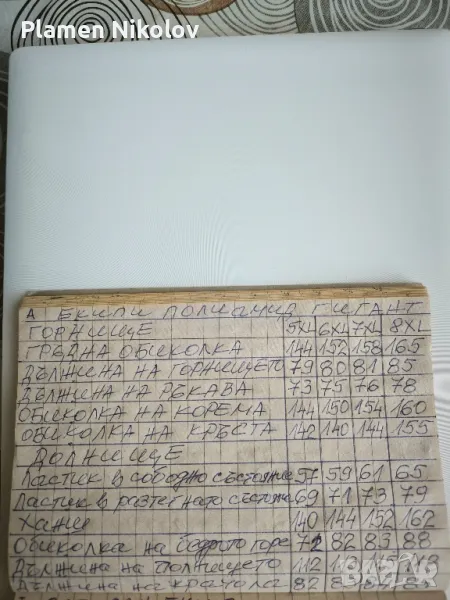 Plamen Nikolov
А ЕКИПИ ПОЛИАМИД ГИГАНТ
ГОРНИЩЕ 5XL 6XL 7XL 8XL
ГРЪДНА ОБИКОЛКА 144 152 158 165
ДЪЛЖИНА НА ГОРНИЩЕТО 79 80 81 85
ДЪЛЖИНА НА РЪКАВА 73 75 76 78
ОБИКОЛКА НА КОРЕМА 144 150 154 160
ОБИКОЛКА НА КРЪСТА 142 140 144 155
ДОЛНИЩЕ
Ластик в свободно състояние 57 59 61 65
Ластик в разтегнато състояни 69 71 73 79
Ханш 140 144 152 162
Обиколка на бедрото горе 72 82 83 88
Дължина на долнището 112
Дължина на крачола 82